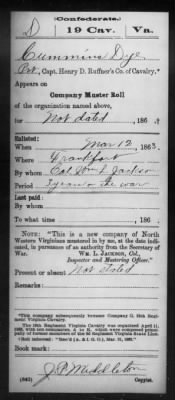 Confederate.
D | 19 Cav. | Va.
Cummins Dye
Pvt, Capt. Henry D. Ruffner's Co. of Cavalry.*
Appears on
Company Muster Roll
of the organization named above,
for Not dated, 186 .
Enlisted:
When Mar 12, 1863
Where Frankfort
By whom Col Wm L Jackson
Period 3 years or the war
Last paid:
By whom
To what time , 186 .
NOTE: "This is a new company of North
Western Virginians mustered in by me, at the date indi-
cated, in pursuance of an authority from the Secretary
of War. WM. L. JACKSON, Col.,
Inspector and Mustering Officer."
Present or absent Not stated
Remarks:
*This company subsequently became Company G, 19th Reg-
iment Virginia Cavalry.
The 19th Regiment Virginia Cavalry was organized April 11,
Book mark:
(642) J P Middleton
Copyist.